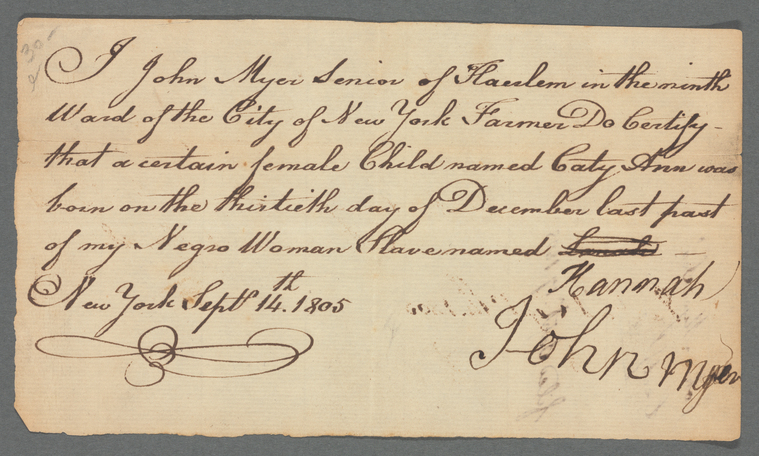 I John Myer Senior of Haerlem in the ninth
Ward of the City of New York Farmer Do Certify -
that a certain female Child named Caty Ann was
born on the thirtieth day of December last past
of my Negro Woman Slave named
Hannah
New York Septr 14.th 1805
John Myer